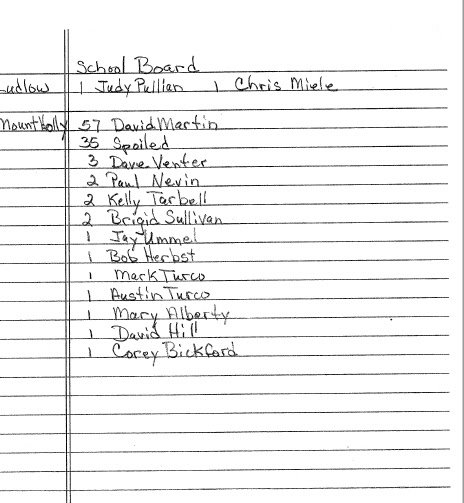 School Board
Ludlow 1 Judy Pullian 1 Chris Miele
Mount holly 57 David Martin
35 Spoiled
3 Dave Venter
2 Paul Nevin
2 Kelly Tarbell
2 Brigid Sullivan
1 Jay Ummel
1 Bob Herbst
1 Mark Turco
1 Austin Turco
1 Mary Alberty
1 David Hill
1 Corey Bickford